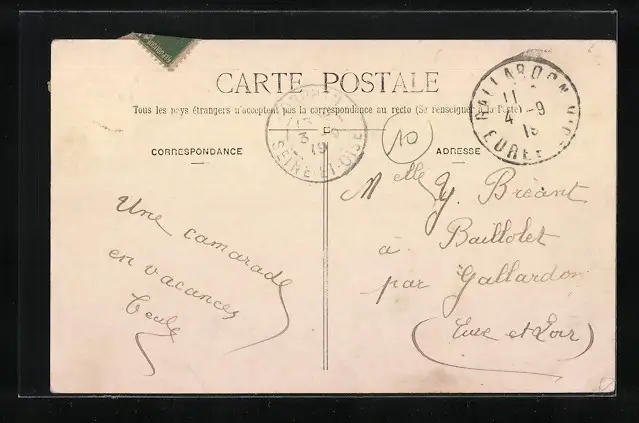 CARTE POSTALE
Tous les pays étrangers n'acceptent pas la correspondance au recto (Se renseigner à la Poste)
CORRESPONDANCE
ADRESSE
Une camarade
en vacances
Melle Y. Bréant
à Baillolet
par Gallardon
(Eure et Loir)
10
SEINE-ET-OISE
GALLARDON
11
4 -9
EURE